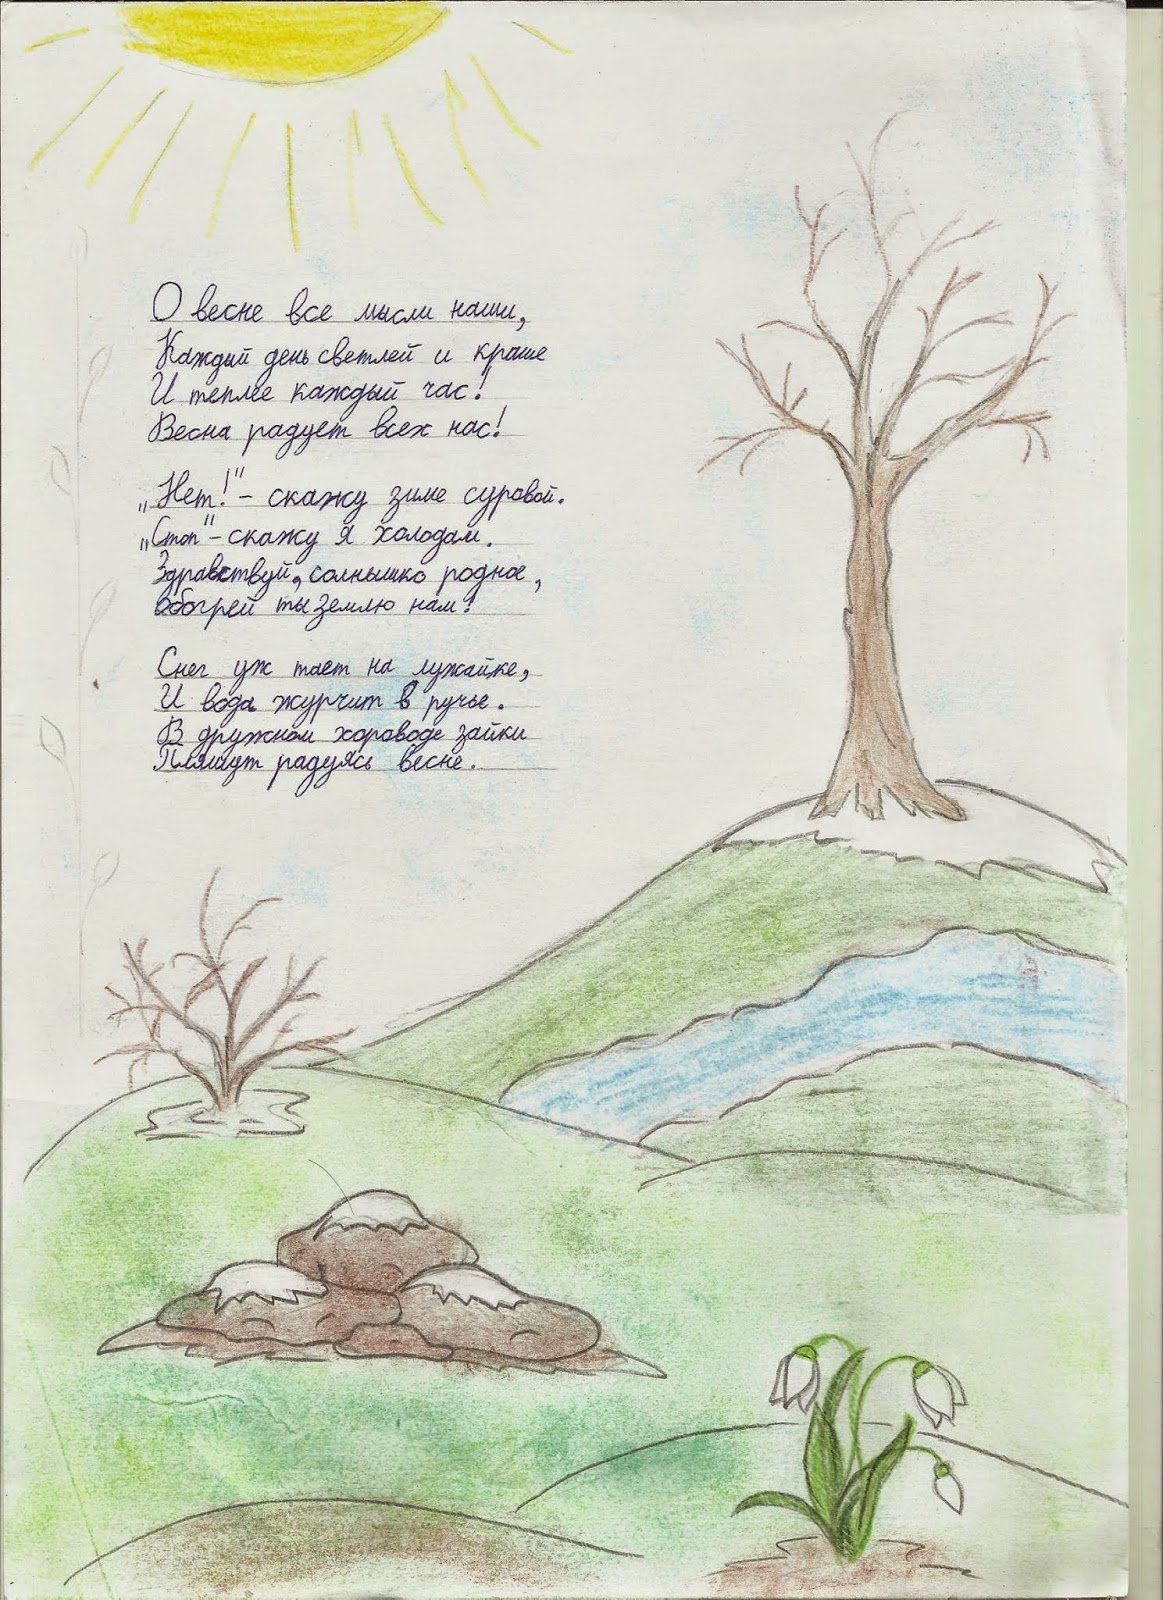 О весне все мысли наши,
Каждый день светлей и краше
И теплее каждый час!
Весна радует всех нас!
„Нет!"- скажу зиме суровой.
„Стоп"-скажу я холодам.
Здравствуй, солнышко родное,
Обогрей ты землю нам!
Снег уж тает на лужайке,
И вода журчит в ручье.
В дружном хороводе зайки
Пляшут радуясь весне.